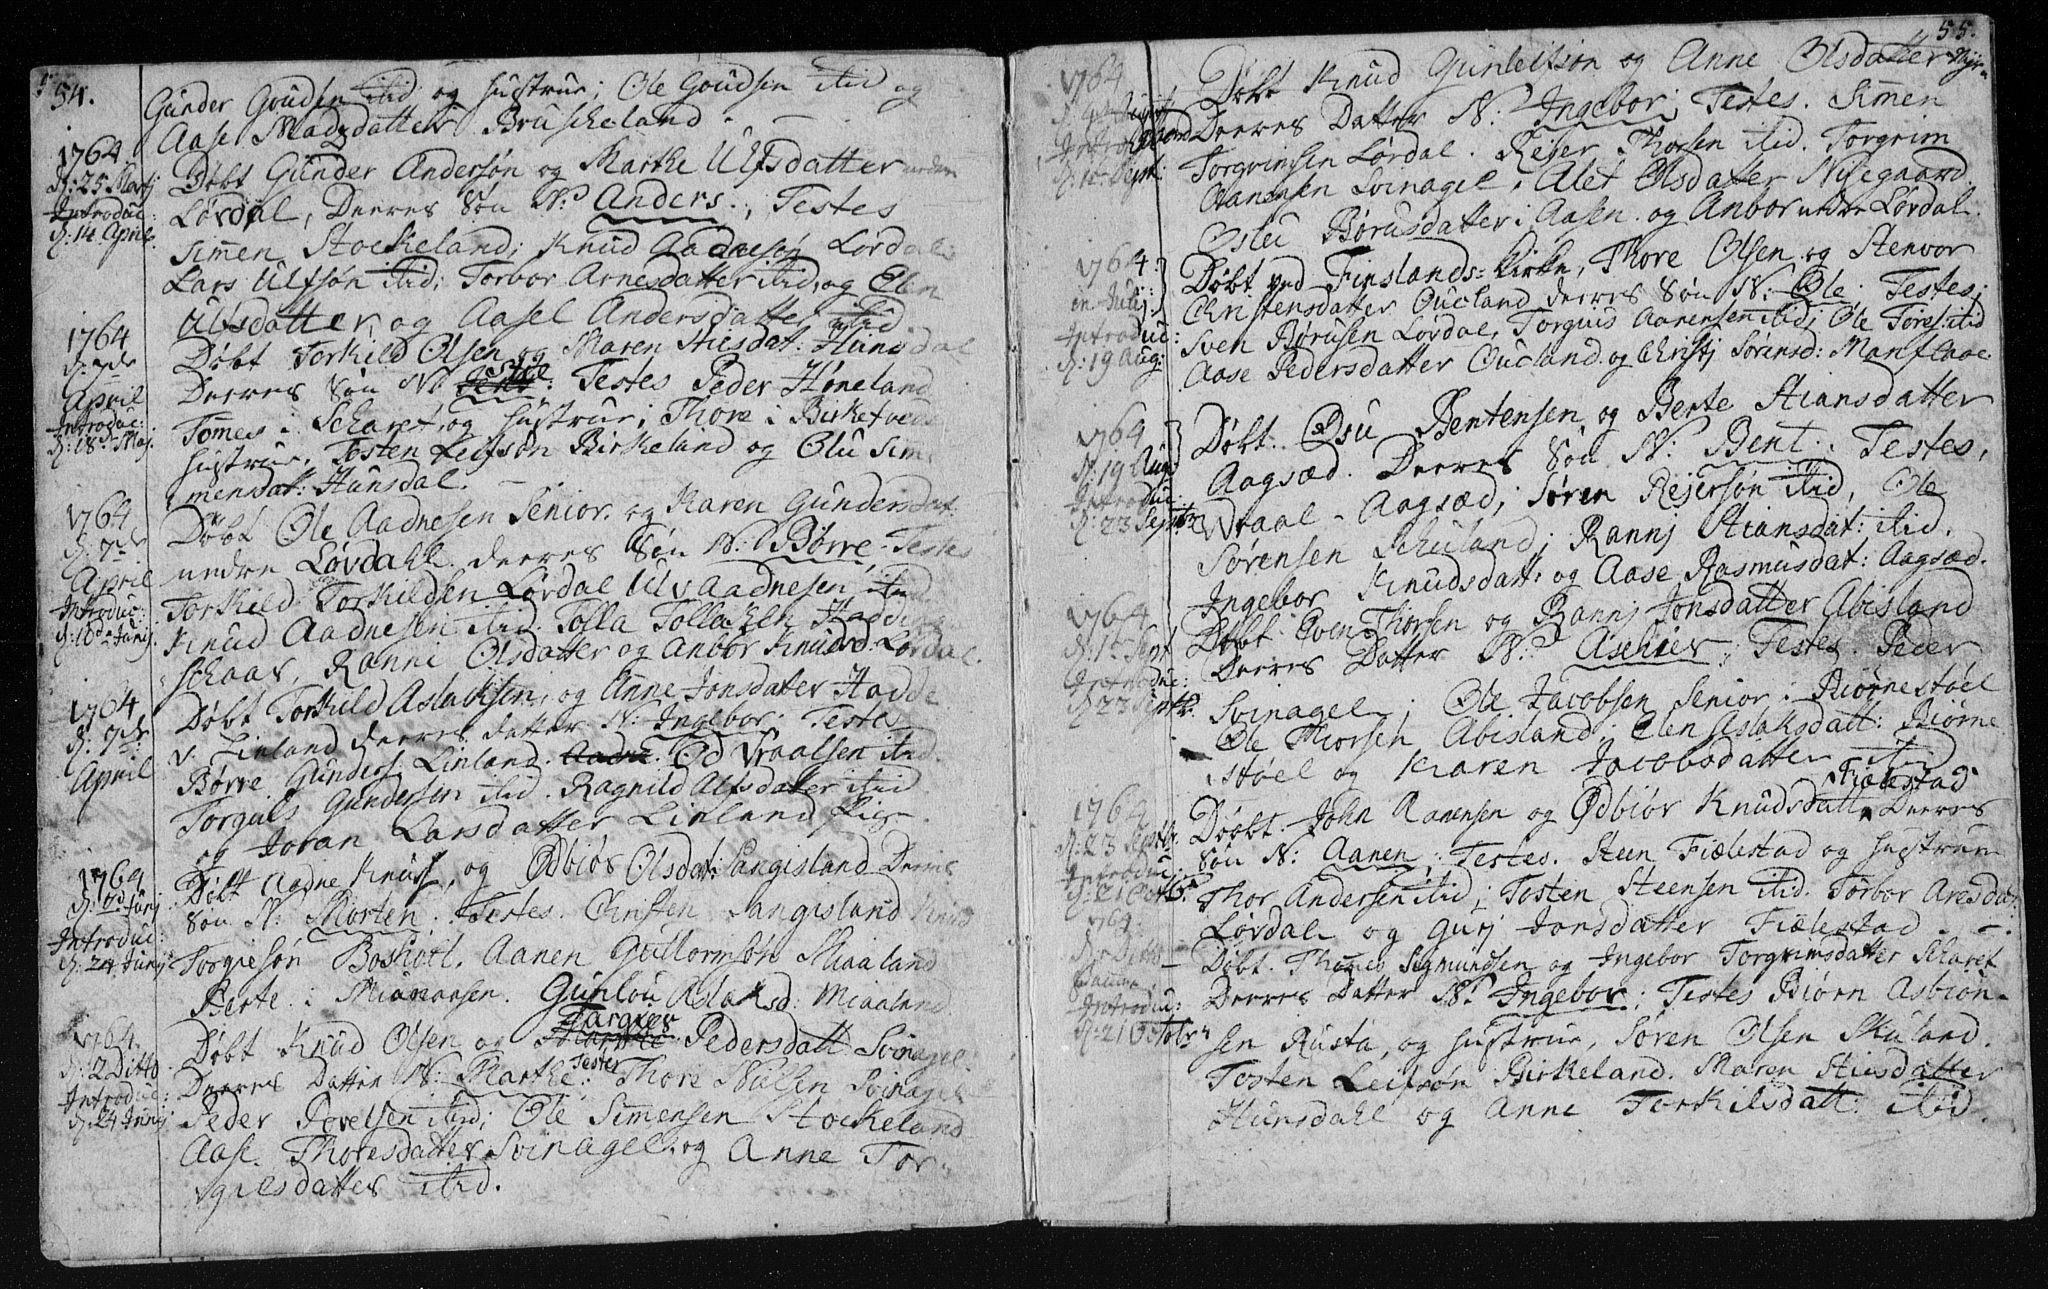 54.
Gunder Goudsen itid og hustrue; Ole Goudsen itid og
Aase Madsdatter Bruskeland.
1764
d: 25 Martj
Introduc:
d: 14 April.
Døbt Gunder Andersøn og Marthe Ulfsdatter nedre
Lørdal, Deeres Søn N: Anders. Testes
Simen Stockeland; Knud Aadnesøn Lørdal:
Lars Ulfsøn itid; Torbor Arnesdatter itid, og Elen
Ulfsdatter, og Aasel Andersdatter itid.
1764
d: 7de
April
Introduc:
d: 18de Maj.
Døbt Torkild Olsen og Maren Stiesdat: Hunsdal
Deeres Søn N: Testes Peder Høneland
Tomes i Scharet og hustrue; Thore i Birketvedt
hustrue, Tosten Leifsøn Birkeland og Olu Sim-
mensdat: Hunsdal.
1764
d: 7de
April
Introduc:
d: 10de Junij.
Døbt Ole Aadnesen Senior og Karen Gundersdat:
nedre Lørdahl deeres Søn N: Børre. Testes
Torkild Torkildsen Lørdal Ulv Aadnesen itid
Knud Aadnesen itid. Tolla Tollachsen Hadding
schaar, Ranni Olsdatter og Anbor Knudsd: Lørdal.
1764
d: 7de
April
Døbt Torkild Aslachsen, og Anne Jonsdatter Hadde
v: Linland deeres datter N: Ingebor. Testes
Børre Gunders: Linland. Aadne Od Vraalsen itid.
Torguls Gundersen itid. Ragnild Alfsdatter itid
og Joran Larsdatter Linland Pige.
1764
Junij
Introduc:
d: 24 Junij
Døbt Aadne Knuds, og Ødbiør Olsdat: Sangisland Deeris
Søn N: Morten. Testes. Christen Sangisland Knud
Torgiesøn Boskott. Aanen Guttormsøn Miaaland
Berte i Gunlou Aslaksd: Miaaland
1764.
d: 2 Ditto.
Introduc:
d: 24 Junij
Døbt Knud Olsen og Targier Pedersdatt: Svinagel.
Deeres Datter N: Marthe: Testes Thore Nilsen Svinagel
Peder Povelsen itid; Ole Simensen Stockeland
Aase Thoresdatter Svinagel, og Anne Tor-
gilsdatter itid.
55.
1764
August
Introduc:
Sept:
Døbt Knud Gunleifson og Anne Olsdatter
Deeres Datter N: Ingebor; Testes. Simen
Torgrimsen Lørdal. Rejer Thorsen itid. Torgrim
Hansen Svinagel, Alet Olsdatter Nyegaard
Oslu Børusdatter i Aasen og Anbor nedre Lørdal.
1764:
Julij
Introduc:
d: 19 Aug:
Døbt ved Finslands Kirke, Thore Olsen og Stenvor
Christensdatter Oucland deeres Søn N: Ole. Testes;
Sven Børusen Lørdal, Torguis Aanensen itid; Ole Tores: itid
Aase Pedersdatter Oucland og Christj Sørensd: Manflaae
1764
d: 19 Aug
Introduc:
d: 23 Septbr
Døbt. Osu Bentensen og Berte Stiansdatter
Aagsæd. Deeres Søn N: Bent. Testes,
Vraal Aagsæd; Søren Rejersøn itid, Ole
Sørensen Schuland; Rannj Stiansdat: itid.
Ingebor Knudsdatt: og Aase Rasmusdat: Aagsæd.
1764
d: 1te Sept
Introduc:
d: 23 Septbr.
Døbt. Even Thorsen og Rannj Jonsdatter Abisland
Deeres Datter N: Aschier; Testes. Peder
Svinagel; Ole Jacobsen Senior i Biørnestøel
Ole Thorsen Abisland; Elen Aslaksdatt: Biørne
støel og Karen Jacobsdatter itid
1764
d: 23 Septbr.
Introduc:
d: 21 Octbr.
Døbt. John Aanensen og Ødbiør Knudsdatt: Fiælestad Deeres
Søn N: Aanen; Testes. Steen Fiælestad og hustrue
Thor Andersen itid; Tosten Steensen itid. Torbor Aresdat:
Lørdal og Gurj Jonsdatter Fiælestad.
1764.
Introduc:
d: 21 Octobr
Døbt. Thomes Sigmundsen og Ingebor Torgrimsdatter Scharet
Deeres Datter N: Ingebor; Testes Biørn Asbiøn-
sen Rusta, og hustrue, Søren Olsen Skuland.
Tosten Leifsøn Birkeland. Maren Stiesdatter
Hunsdahl og Anne Torkilsdatt: itid.